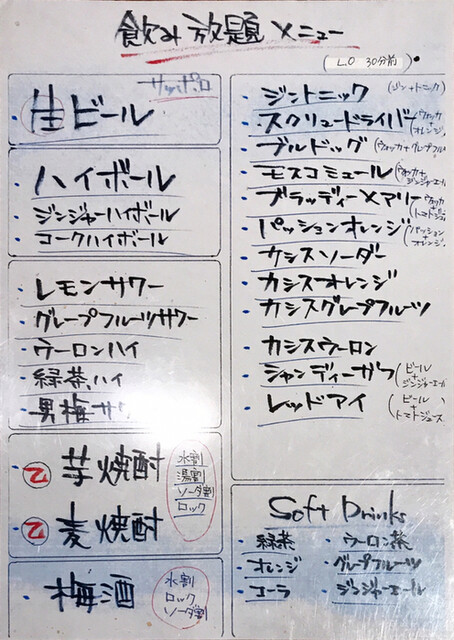 飲み放題メニュー
(L.O 30分前)
サッポロ
・生ビール
・ハイボール
・ジンジャーハイボール
・コークハイボール
・レモンサワー
・グレープフルーツサワー
・ウーロンハイ
・緑茶ハイ
・男梅サワ
・乙 芋焼酎
・乙 麦焼酎
水割
湯割
ソーダ割
ロック
・梅酒
水割
ロック
ソーダ割
・ジントニック (ジン+トニック)
・スクリュードライバー (ウォッカ+オレンジ)
・ブルドッグ (ウォッカ+グレープフル
・モスコミュール (ウォッカ+ジンジャーエール)
・ブラッディーメアリー (ウォッカ+トマトジュ
・パッションオレンジ (パッション+オレンジ)
・カシスソーダー
・カシスオレンジ
・カシスグレープフルーツ
・カシスウーロン
・シャンディーガフ (ビール+ジンジャーエール)
・レッドアイ (ビール+トマトジュース)
Soft Drinks
・緑茶 ・ウーロン茶
・オレンジ ・グレープフルーツ
・コーラ ・ジンジャーエール